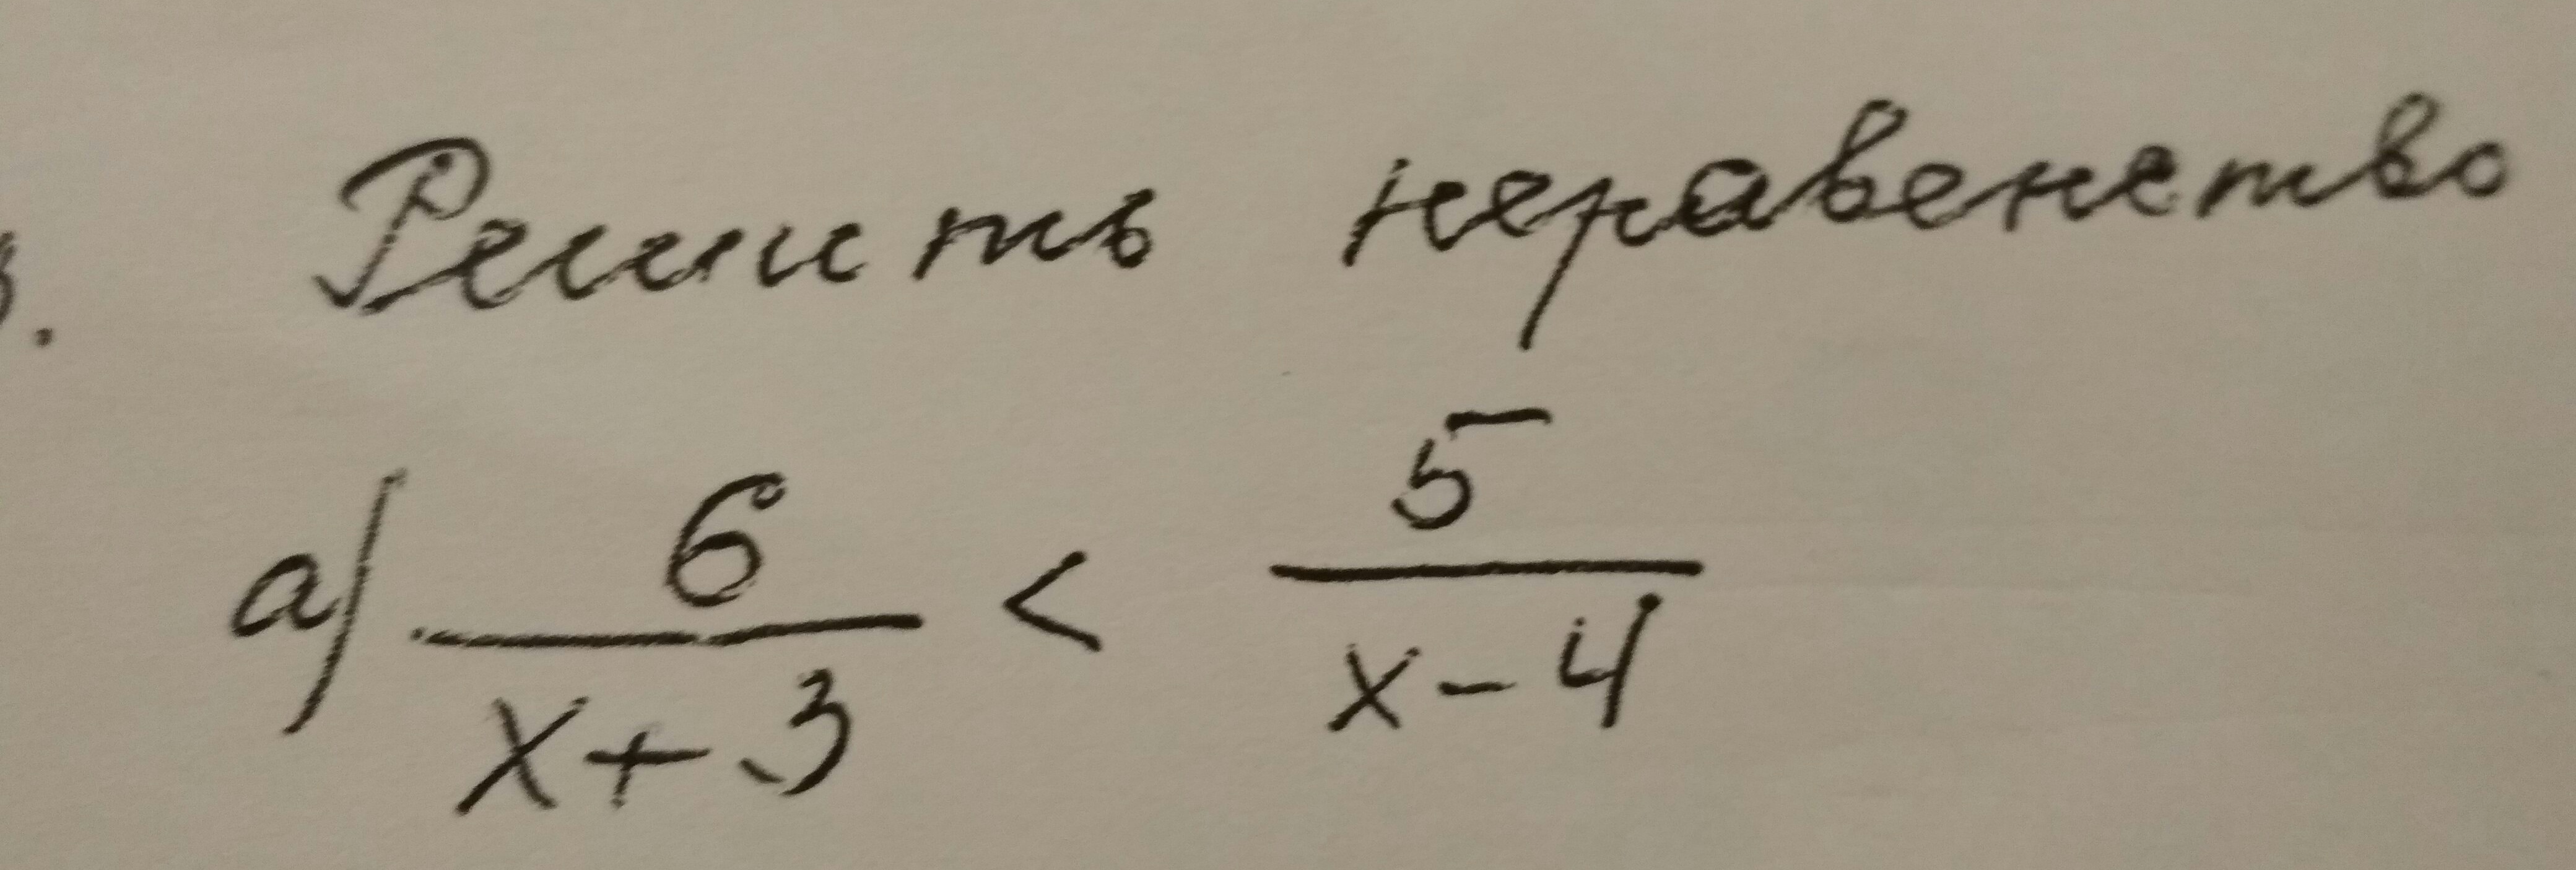 Решить неравенство
а) 6/(x+3) < 5/(x-4)